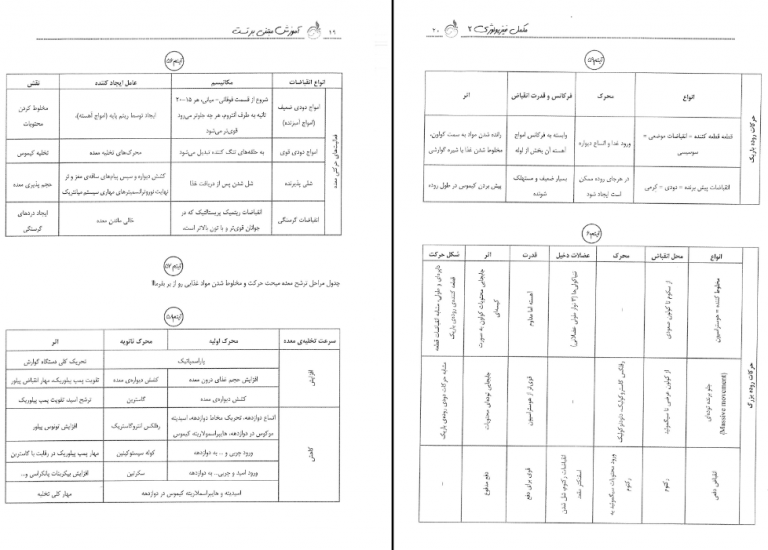 ۱۶ آموزش مبتنی بر تست
آیتم ۵۶
انواع انقباضات مکانیسم عامل ایجاد کننده نقش
فعالیت‌های حرکتی معده
امواج دودی ضعیف (امواج آمیزنده)
شروع از قسمت فوقانی - میانی، هر ۱۵-۲۰
ثانیه به طرف آنتروم، هر چه جلوتر می‌رود
قوی‌تر می‌شود
ایجاد توسط ریتم پایه (امواج آهسته)،
مخلوط کردن
محتویات
امواج دودی قوی به حلقه‌های تنگ کننده تبدیل می‌شود محرک‌های تخلیه معده تخلیه کیموس
شلی پذیرنده شل شدن پس از دریافت غذا
کشش دیواره و سپس پیام‌های ساقه‌ی مغز و در
نهایت نوروترانسمیترهای مهاری سیستم میانتریک
حجم پذیری معده
انقباضات گرسنگی
انقباضات ریتمیک پریستالتیک که در
جوانان قوی‌تر و با تون بالاتر است.
خالی ماندن معده
ایجاد دردهای
گرسنگی
آیتم ۵۷
جدول مراحل ترشح معده مبحث حرکت و مخلوط شدن مواد غذایی رو از بر بفرما!!
آیتم ۵۸
سرعت تخلیه‌ی معده محرک اولیه محرک ثانویه اثر
افزایش
پاراسمپاتیک تحریک کلی دستگاه گوارش
افزایش حجم غذای درون معده کشش دیواره‌ی معده تقویت پمپ پیلوریک، مهار انقباض پیلور
کشش دیواره‌ی معده گاسترین ترشح اسید، تقویت پمپ پیلوریک
کاهش
اتساع دوازدهه، تحریک مخاط دوازدهه، اسیدیته
کیموس در دوازدهه، هایپراسمولاریته کیموس
رفلکس انتروگاستریک افزایش تونوس پیلور
ورود چربی و ... به دوازدهه کوله سیستوکینین مهار پمپ پیلوریک در رقابت با گاسترین
ورود اسید و چربی... به دوازدهه سکرتین افزایش بیکربنات پانکراسی و...
اسیدیته و هایپراسمولاریته کیموس در دوازدهه مهار کلی تخلیه
مکمل فیزیولوژی ۲ ۲۰
آیتم ۵۹
حرکات روده باریک
انواع محرک فرکانس و قدرت انقباض اثر
قطعه قطعه کننده = انقباضات موضعی =
سوسیسی
ورود غذا و اتساع دیواره
وابسته به فرکانس امواج
آهسته آن بخش از لوله
رانده شدن مواد به سمت کولون،
مخلوط شدن غذا با شیره گوارشی
انقباضات پیش برنده = دودی = کرمی
در هرجای روده ممکن
است ایجاد شود.
بسیار ضعیف و مستهلک
شونده
پیش بردن کیموس در طول روده
آیتم ۶۰
حرکات روده بزرگ
انواع محل انقباض محرک عضلات دخیل قدرت اثر شکل حرکت
مخلوط کننده = هوستراسیون
از سکوم تا کولون صعودی
-
تنیاکولی‌ها (۳ نوار طولی عضلانی)
آهسته اما مداوم
جابجایی محتویات کولون به صورت
کیسه‌ای
دایره‌ای و طولی، مشابه انقباضات قطعه
قطعه کننده‌ی روده‌ی باریک
جلو برنده توده‌ای
(Massive movement)
از کولون عرضی تا سیگموئید
رفلکس گاستروکولیک، دئودنوکولیک
-
قوی‌تر از هوستراسیون
جابجایی توده‌ای محتویات
مشابه حرکات دودی روده‌ی باریک
انقباض دفعی
رکتوم
ورود محتویات سیگموئید به
رکتوم
انقباضات رکتوم، شل شدن
اسفنکتر مقعد
قوی برای دفع
دفع مدفوع
-